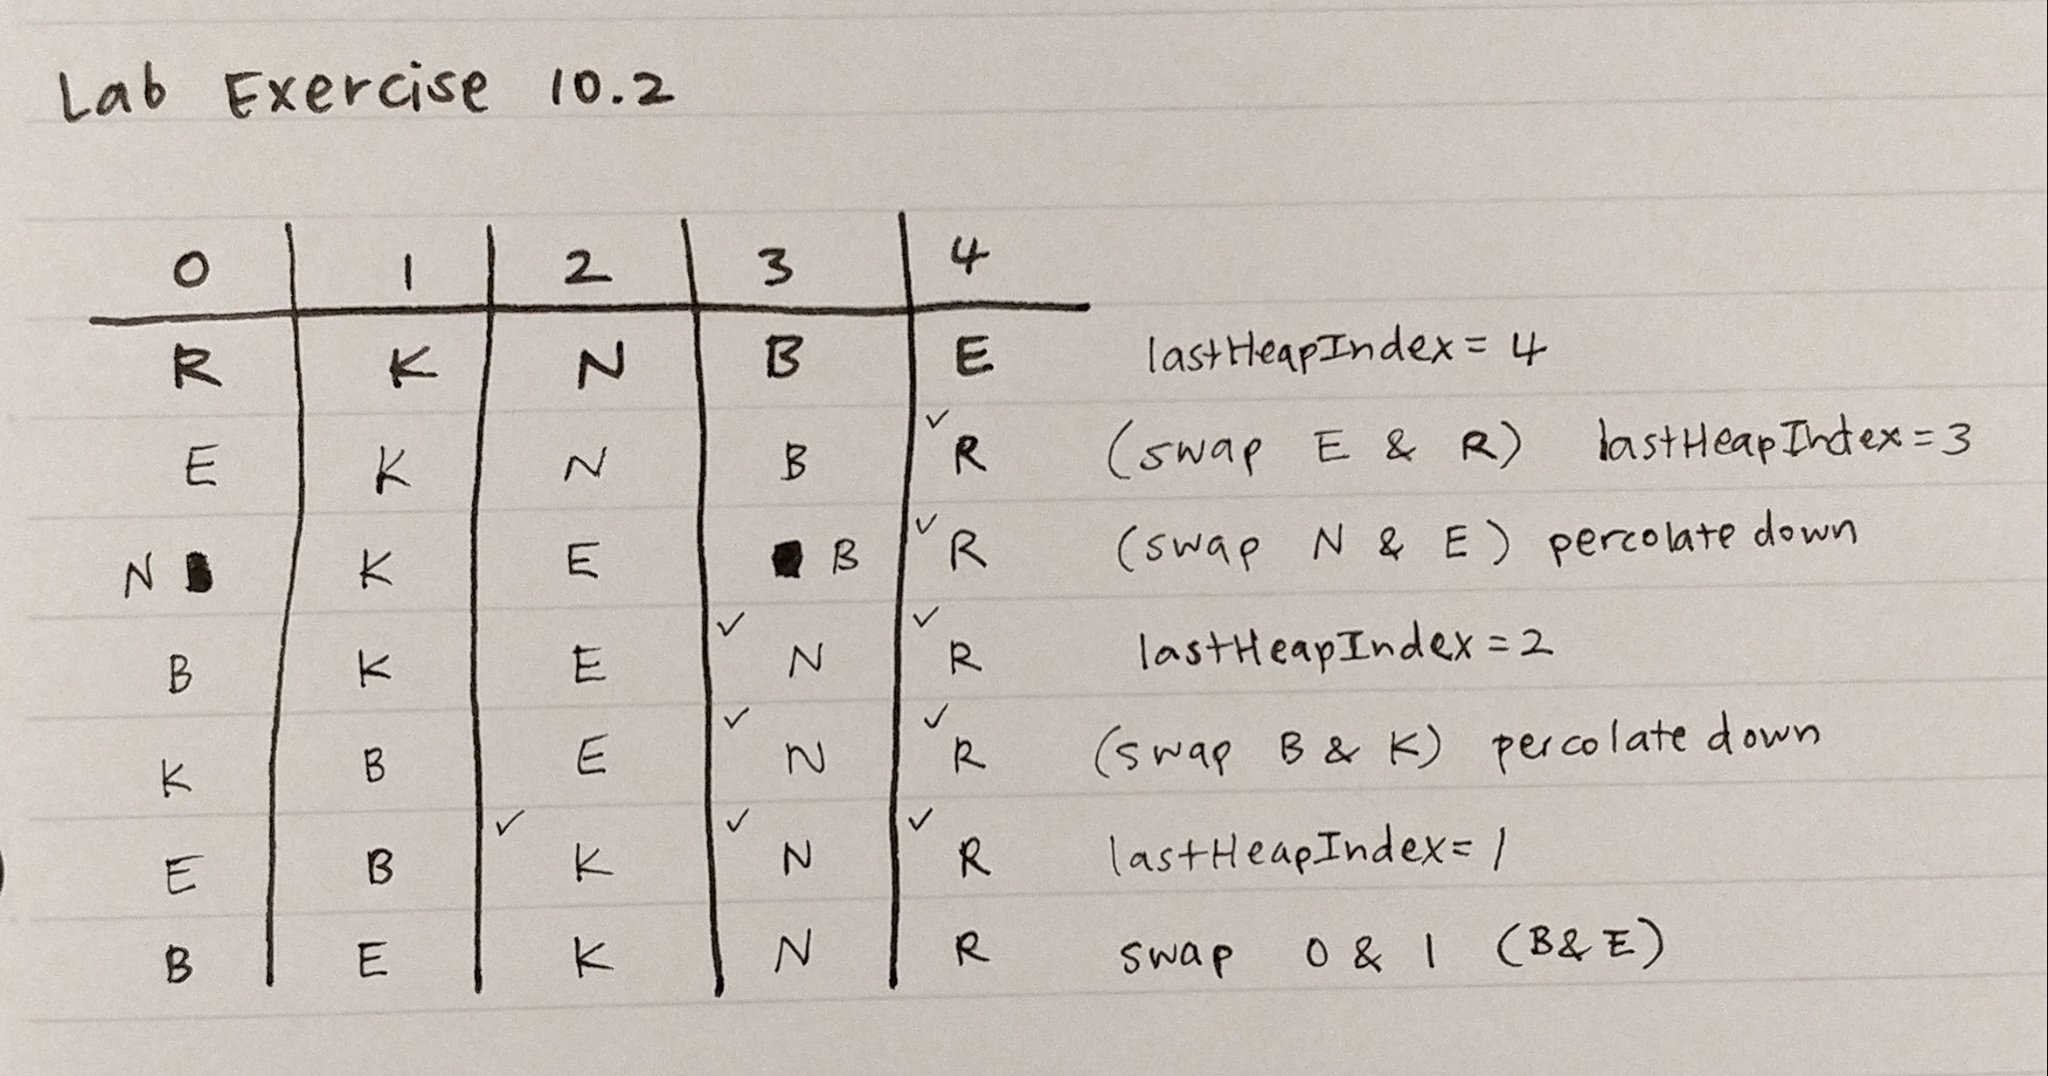 Lab Exercise 10.2
0 1 2 3 4
R K N B E lastHeapIndex = 4
E K N B ✓R (swap E & R) lastHeapIndex = 3
N K E B ✓R (swap N & E) percolate down
B K E ✓N ✓R lastHeapIndex = 2
K B E ✓N ✓R (swap B & K) percolate down
E B ✓K ✓N ✓R lastHeapIndex = 1
B E K N R swap 0 & 1 (B & E)